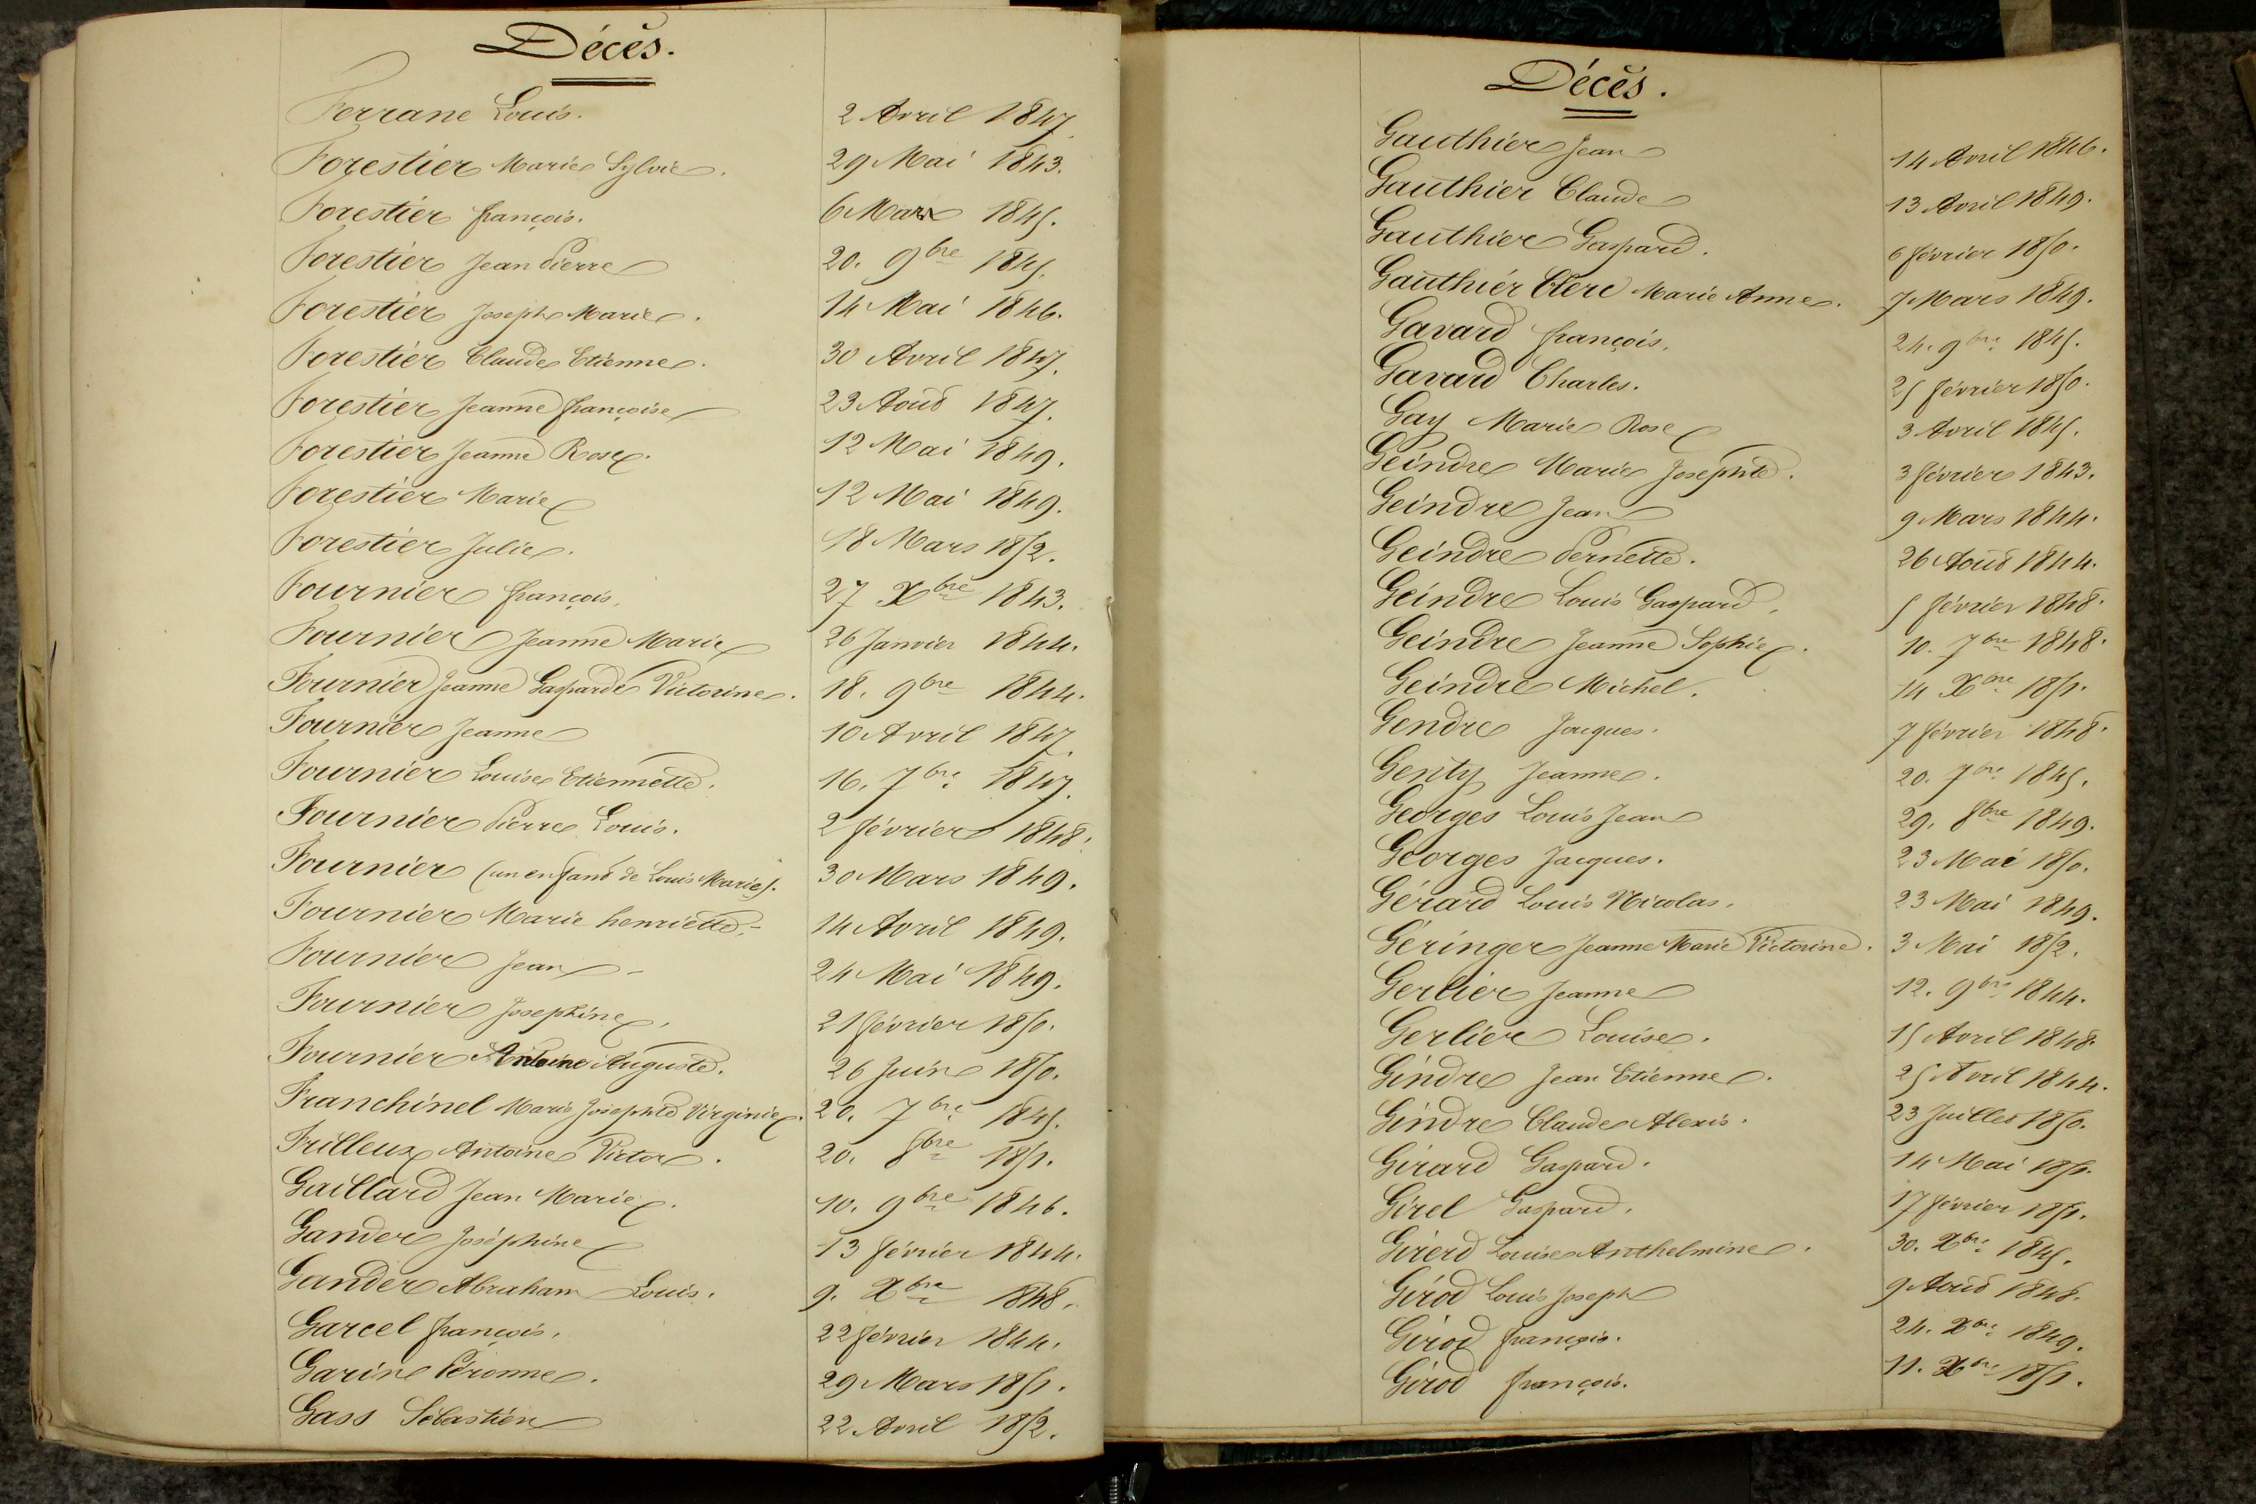 Décès.
Ferrane Louis. 2 Avril 1847.
Forestier Marie Sylvie. 29 Mai 1843.
Forestier françois. 6 Mars 1845.
Forestier Jean Pierre 20. 9bre 1845.
Forestier Joseph Marie. 14 Mai 1846.
Forestier Claude Etienne. 30 Avril 1847.
Forestier Jeanne françoise 23 Août 1847.
Forestier Jeanne Rose. 12 Mai 1849.
Forestier Marie 12 Mai 1849.
Forestier Julie. 18 Mars 1852.
Fournier françois. 27 Xbre 1843.
Fournier Jeanne Marie 26 Janvier 1844.
Fournier Jeanne Gasparde Victorine. 18. 9bre 1844.
Fournier Jeanne 10 Avril 1847.
Fournier Louise Etiennette. 16. 7bre 1847.
Fournier Pierre Louis. 2 février 1848.
Fournier (un enfant de Louis Marie). 30 Mars 1849.
Fournier Marie henriette. 14 Avril 1849.
Fournier Jean 24 Mai 1849.
Fournier Josephine. 21 février 1850.
Fournier Antoine Auguste. 26 Juin 1850.
Franchinel Marie Josephte Virginie. 20. 7bre 1845.
Frilleux Antoine Victor. 20. 8bre 1851.
Gaillard Jean Marie. 10. 9bre 1846.
Gander Joséphine 13 février 1844.
Gander Abraham Louis. 9. Xbre 1848.
Garcel françois. 22 février 1844.
Garine Péronne. 29 Mars 1851.
Gass Sébastien 22 Avril 1852.
Décès.
Gauthier Jean 14 Avril 1846.
Gauthier Claude 13 Avril 1849.
Gauthier Gaspard. 6 février 1850.
Gauthier Clerc Marie Anne. 7 Mars 1849.
Gavard françois. 24. 9bre 1845.
Gavard Charles. 25 février 1850.
Gay Marie Rose 3 Avril 1845.
Geindre Marie Josephte. 3 février 1843.
Geindre Jean 9 Mars 1844.
Geindre Pernette. 26 Août 1844.
Geindre Louis Gaspard. 5 février 1848.
Geindre Jeanne Sophie. 10. 7bre 1848.
Geindre Michel. 14 Xbre 1851.
Gendre Jacques. 7 février 1848.
Genty Jeanne. 20. 7bre 1845.
Georges Louis Jean 29. 8bre 1849.
Georges Jacques. 23 Mai 1850.
Gérard Louis Nicolas. 23 Mai 1849.
Géringer Jeanne Marie Victorine. 3 Mai 1852.
Gerlier Jeanne 12. 9bre 1844.
Gerlier Louise. 15 Avril 1848.
Gindre Jean Etienne. 25 Avril 1844.
Gindre Claude Alexis. 23 Juillet 1850.
Girard Gaspard. 14 Mai 1851.
Girel Gaspard. 17 février 1851.
Girerd Louise Anthelmine. 30. Xbre 1845.
Girod Louis Joseph 9 Août 1848.
Girod françois. 24. Xbre 1849.
Girod françois. 11. Xbre 1851.